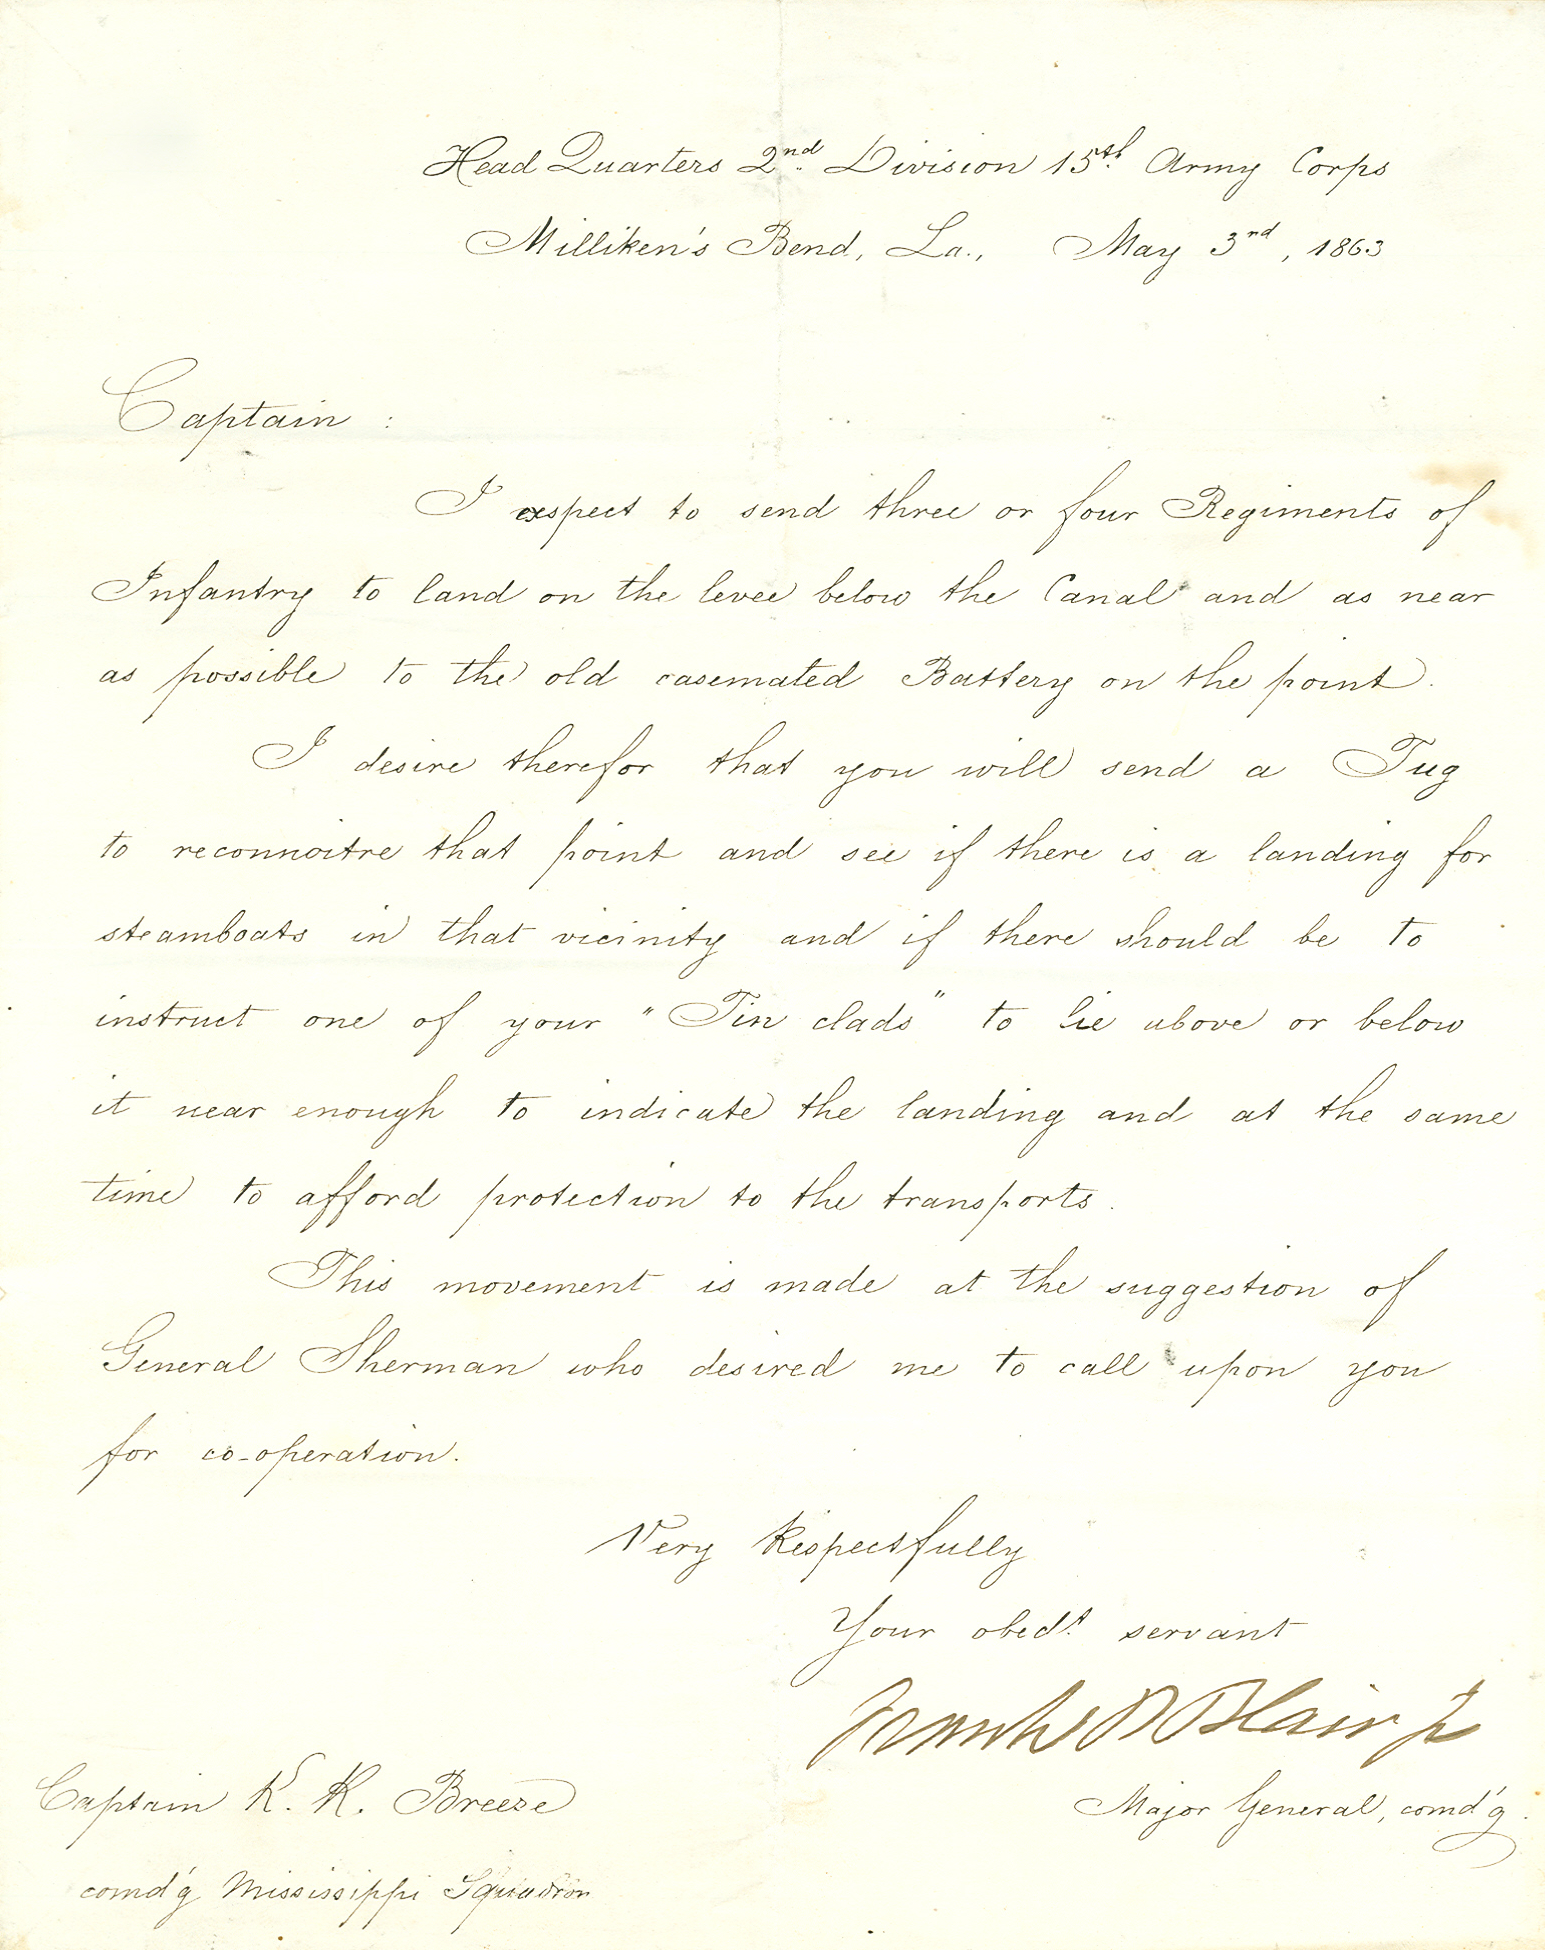 Head Quarters 2nd Division 15th Army Corps
Milliken's Bend, La., May 3rd, 1863
Captain :
I expect to send three or four Regiments of
Infantry to land on the levee below the Canal and as near
as possible to the old casemated Battery on the point.
I desire therefor that you will send a Tug
to reconnoitre that point and see if there is a landing for
steamboats in that vicinity and if there should be to
instruct one of your "Tin clads" to lie above or below
it near enough to indicate the landing and at the same
time to afford protection to the transports.
This movement is made at the suggestion of
General Sherman who desired me to call upon you
for co-operation.
Very Respectfully
Your obedt. servant
Frank P Blair Jr
Major General, comd'g.
Captain K. R. Breese
comd'g Mississippi Squadron